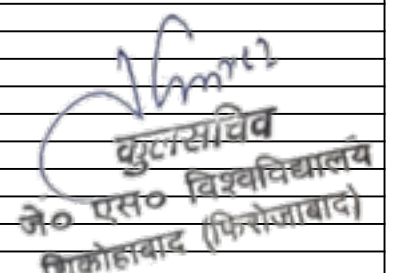 कुलसचिव
जे० एस० विश्वविद्यालय
शिकोहाबाद (फिरोजाबाद)